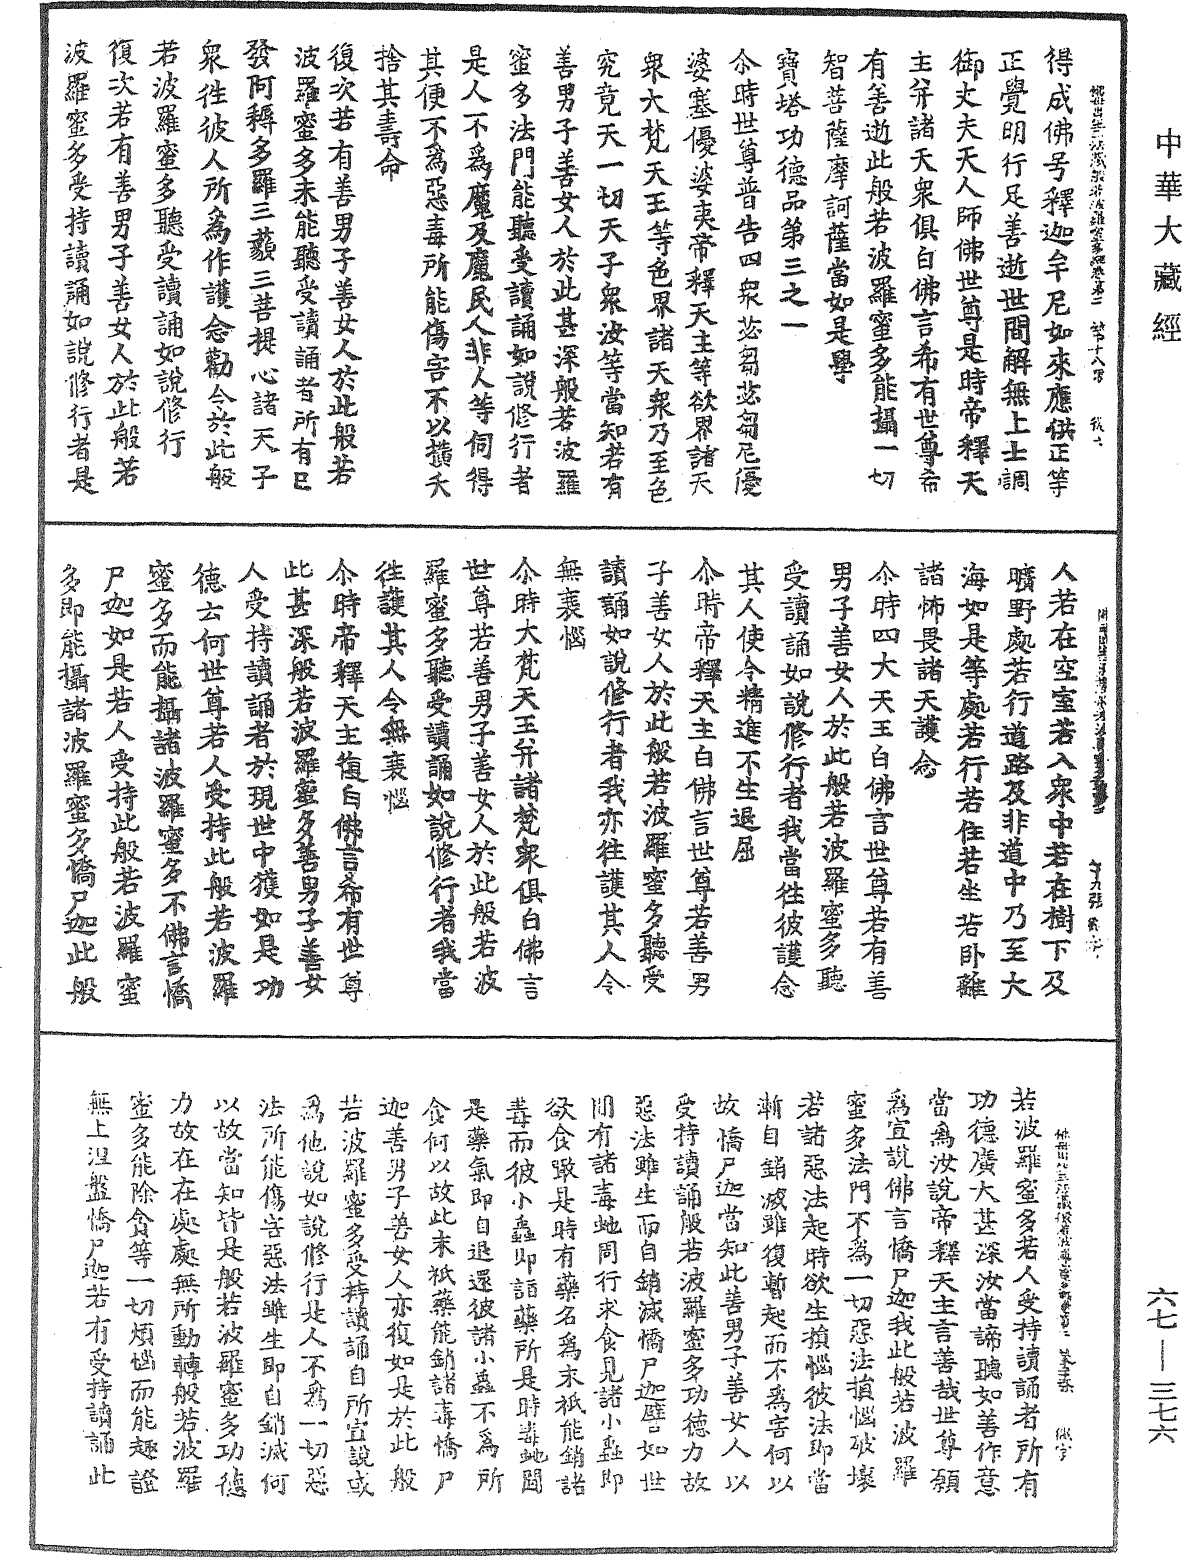 中華大藏經
得成佛号釋迦牟尼如來應供正等
正覺明行足善逝世間解無上士調
御丈夫天人師佛世尊是時帝釋天
主幷諸天衆俱白佛言希有世尊希
有善逝此般若波羅蜜多能攝一切
智菩薩摩訶薩當如是學
寶塔功德品第三之一
尒時世尊普告四衆苾芻苾芻尼優
婆塞優婆夷帝釋天主等欲界諸天
衆大梵天王等色界諸天衆乃至色
究竟天一切天子衆汝等當知若有
善男子善女人於此甚深般若波羅
蜜多法門能聽受讀誦如說修行者
是人不爲魔及魔民人非人等伺得
其便不爲惡毒所能傷害不以橫夭
捨其壽命
復次若有善男子善女人於此般若
波羅蜜多未能聽受讀誦者所有已
發阿耨多羅三藐三菩提心諸天子
衆往彼人所爲作護念勸令於此般
若波羅蜜多聽受讀誦如說修行
復次若有善男子善女人於此般若
波羅蜜多受持讀誦如說修行者是
人若在空室若入衆中若在樹下及
曠野處若行道路及非道中乃至大
海如是等處若行若住若坐若卧離
諸怖畏諸天護念
尒時四大天王白佛言世尊若有善
男子善女人於此般若波羅蜜多聽
受讀誦如說修行者我當往彼護念
其人使令精進不生退屈
尒時帝釋天主白佛言世尊若善男
子善女人於此般若波羅蜜多聽受
讀誦如說修行者我亦往護其人令
無衰惱
尒時大梵天王幷諸梵衆俱白佛言
世尊若善男子善女人於此般若波
羅蜜多聽受讀誦如說修行者我當
往護其人令無衰惱
尒時帝釋天主復白佛言希有世尊
此甚深般若波羅蜜多善男子善女
人受持讀誦者於現世中獲如是功
德云何世尊若人受持此般若波羅
蜜多而能攝諸波羅蜜多不佛言憍
尸迦如是若人受持此般若波羅蜜
多即能攝諸波羅蜜多憍尸迦此般
若波羅蜜多若人受持讀誦者所有
功德廣大甚深汝當諦聽如善作意
當爲汝說帝釋天主言善哉世尊願
爲宣說佛言憍尸迦我此般若波羅
蜜多法門不爲一切惡法損惱破壞
若諸惡法起時欲生損惱彼法即當
漸自銷滅雖復暫起而不爲害何以
故憍尸迦當知此善男子善女人以
受持讀誦般若波羅蜜多功德力故
惡法雖生而自銷滅憍尸迦譬如世
間有諸毒虵周行求食見諸小蟲即
欲食噉是時有藥名爲末祇能銷諸
毒而彼小蟲即詣藥所是時毒虵聞
是藥氣即自退還彼諸小蟲不爲所
食何以故此末祇藥能銷諸毒憍尸
迦善男子善女人亦復如是於此般
若波羅蜜多受持讀誦自所宣說或
爲他說如說修行是人不爲一切惡
法所能傷害惡法雖生即自銷滅何
以故當知皆是般若波羅蜜多功德
力故在在處處無所動轉般若波羅
蜜多能除貪等一切煩惱而能趣證
無上涅盤憍尸迦若有受持讀誦此
六七—三七六